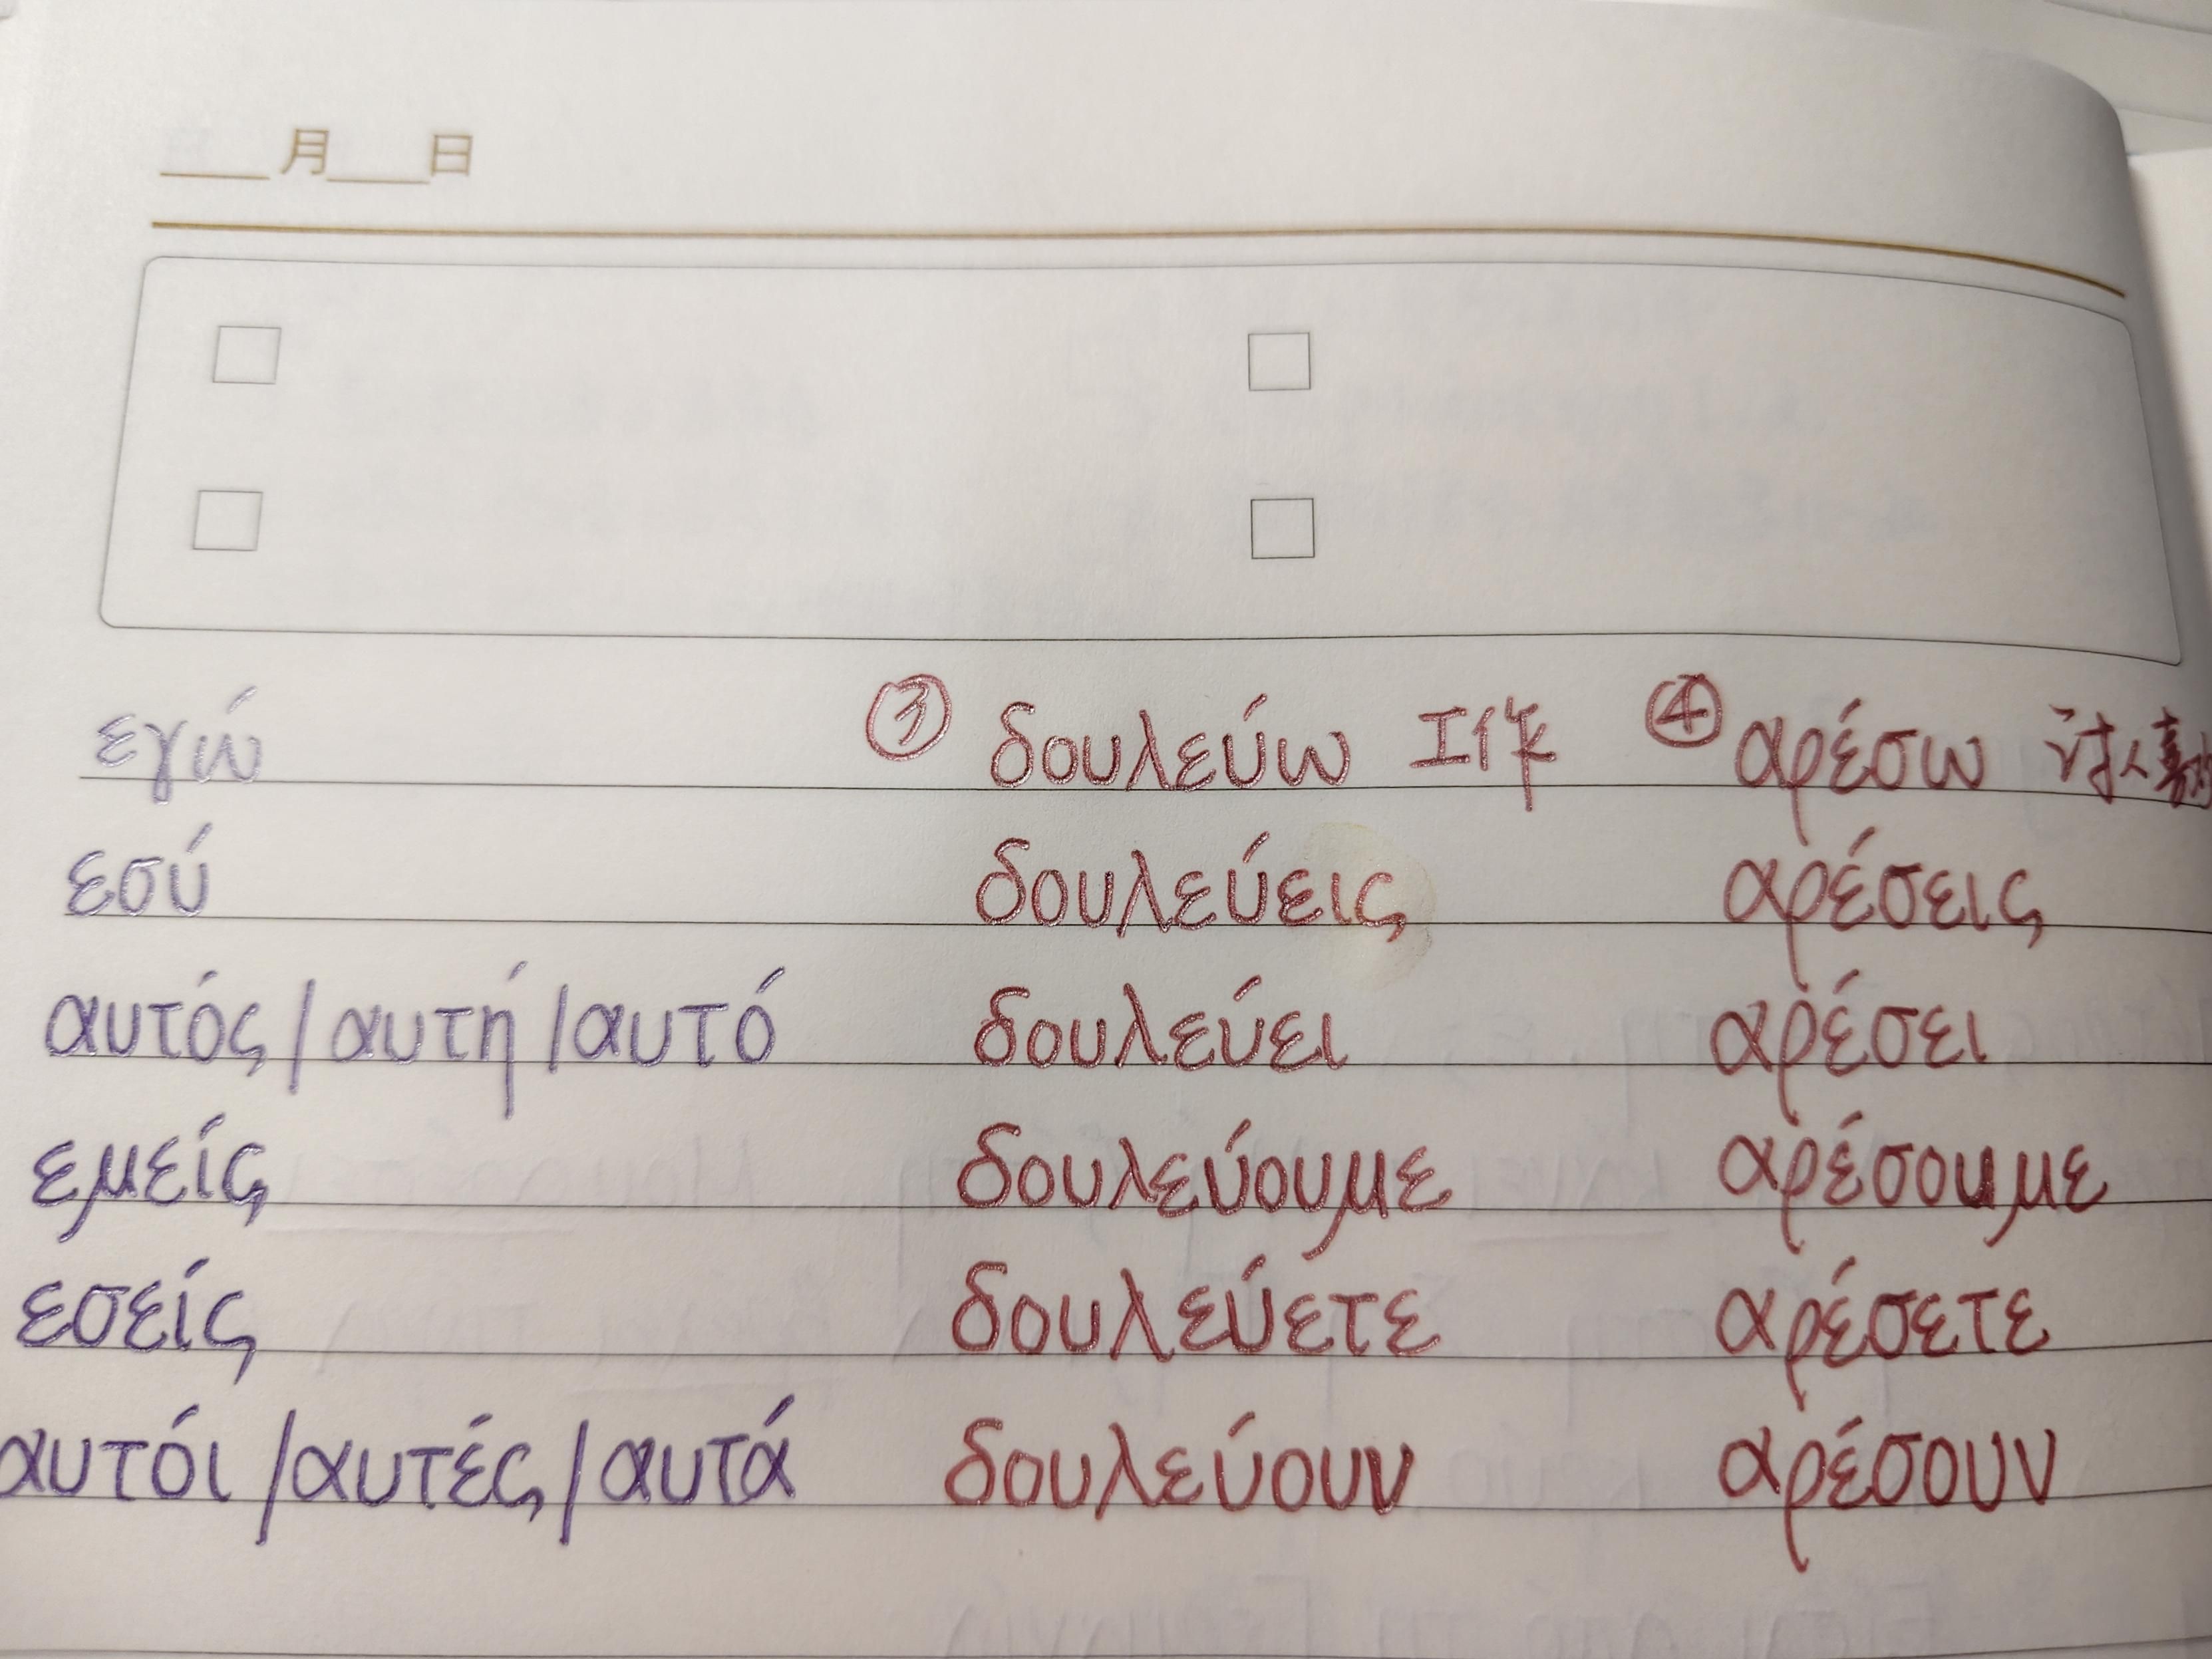 月 日
εγώ ③ δουλεύω 工作 ④ αρέσω 讨人喜欢
εσύ δουλεύεις αρέσεις
αυτός / αυτή / αυτό δουλεύει αρέσει
εμείς δουλεύουμε αρέσουμε
εσείς δουλεύετε αρέσετε
αυτόι / αυτές / αυτά δουλεύουν αρέσουν